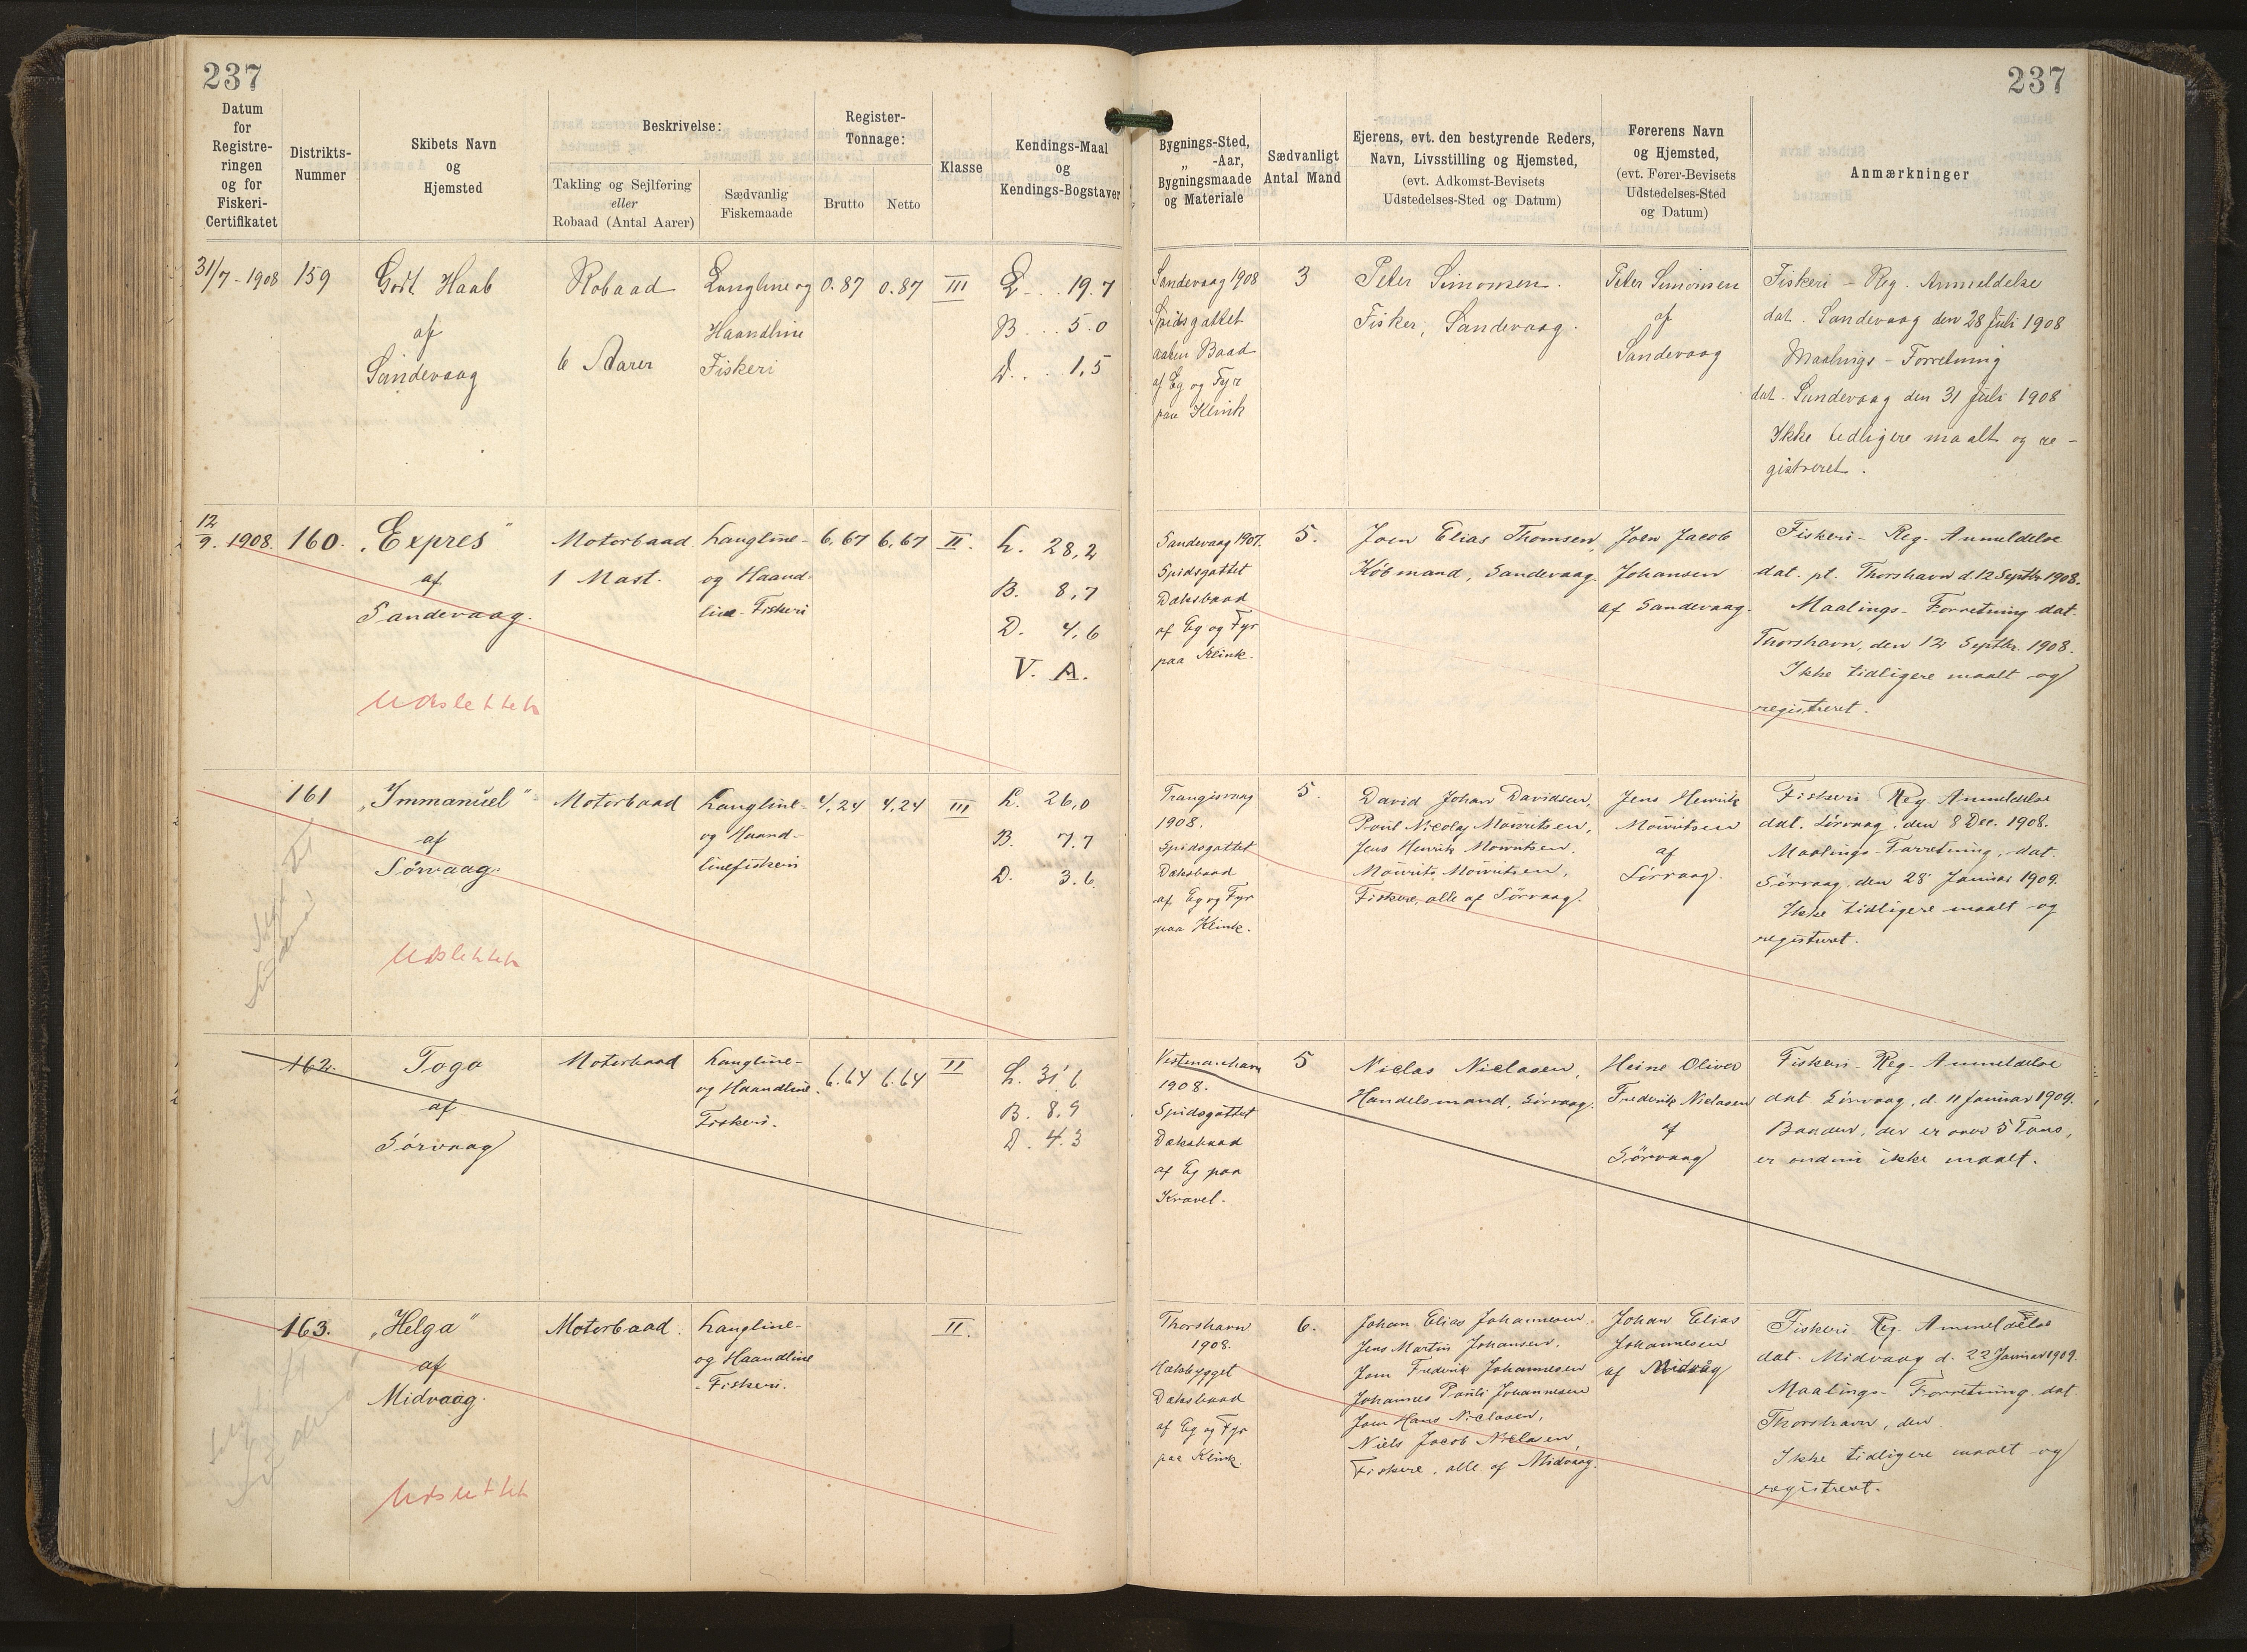 237
237
Datum
for
Registre-
ringen
og for
Fiskeri-
Certifikatet
Distrikts-
Nummer
Skibets Navn
og
Hjemsted
Beskrivelse:
Takling og Sejlføring
eller
Robaad (Antal Aarer)
Sædvanlig
Fiskemaade
Register-
Tonnage:
Brutto
Netto
Klasse
Kendings-Maal
og
Kendings-Bogstaver
Bygnings-Sted,
„ -Aar,
Bygningsmaade
og Materiale
Sædvanligt
Antal Mand
Ejerens, evt. den bestyrende Reders,
Navn, Livsstilling og Hjemsted,
(evt. Adkomst-Bevisets
Udstedelses-Sted og Datum)
Førerens Navn
og Hjemsted,
(evt. Fører-Bevisets
Udstedelses-Sted
og Datum)
Anmærkninger
31/7 - 1908
159
Godt Haab
af
Sandevaag
Robaad
6 Aarer
Langline og
Haandline
Fiskeri
0.87
0.87
III
L... 19.7
B... 5.0
D... 1,5
Sandevaag 1908
Spidsgattet
aaben Baad
af Eg og Fyr
paa Klink
3
Peter Simonsen.
Fisker, Sandevaag.
Peter Simonsen
af
Sandevaag
Fiskeri - Reg. Anmeldelse
dat. Sandevaag den 28 Juli 1908
Maalings - Forretning
dat. Sandevaag den 31 Juli 1908
Ikke tidligere maalt og re-
gistreret.
12/9. 1908.
160.
„Expres"
af
Sandevaag.
Udslettet
Motorbaad
1 Mast.
Langline-
og Haand-
line-Fiskeri
6,67
6,67
II.
L. 28,2
B. 8,7
D. 4,6
V. A.
Sandevaag 1907.
Spidsgattet
Dæksbaad
af Eg og Fyr
paa Klink.
5.
Joen Elias Thomsen,
Købmand, Sandevaag.
Joen Jacob
Johansen
af Sandevaag.
Fiskeri - Reg. Anmeldelse
dat. pt. Thorshavn d. 12 Septbr 1908.
Maalings - Forretning dat.
Thorshavn, den 12 Septbr. 1908.
Ikke tidligere maalt og
registreret.
161
„Immanuel"
af
Sörvaag.
Udslettet
Motorbaad
Langline-
og Haand-
linefiskeri
4,24
4,24
III
L. 26,0
B. 7.7
D. 3.6.
Trangisvaag
1908.
Spidsgattet
Dæksbaad
af Eg og Fyr
paa Klink.
5.
David Johan Davidsen,
Poul Nicolaj Mouritsen,
Jens Henrik Mouritsen,
Mourits Mouritsen,
Fiskere, alle af Sörvaag.
Jens Henrik
Mouritsen
af
Sörvaag.
Fiskeri - Reg. Anmeldelse
dat. Sörvaag, den 8 Dec. 1908.
Maalings - Forretning, dat.
Sörvaag, den 28 Januar 1909.
Ikke tidligere maalt og
registreret.
162.
Togo
af
Sörvaag
Motorbaad
Langline-
og Haandline.
Fiskeri.
6.64
6.64
II
L. 31'6
B. 8,9
D. 4.3
Vestmanhavn
1908.
Spidsgattet
Dæksbaad
af Eg paa
Kravel.
5
Niclas Niclasen,
Handelsmand, Sörvaag.
Heine Oliver
Frederik Niclasen
af
Sörvaag
Fiskeri - Reg. Anmeldelse
dat Sörvaag, d. 11 Januar 1909.
Baaden, der er over 5 Tons,
er endnu ikke maalt.
163.
„Helga"
af
Midvaag.
Udslettet
Motorbaad.
Langline-
og Haandline
- Fiskeri.
II.
Thorshavn
1908.
Hækbygget
Dæksbaad
af Eg og Fyr
paa Klink.
6.
Johan Elias Johannesen,
Jens Martin Johansen,
Joen Frederik Johannesen
Johannes Pauli Johannesen
Joen Hans Niclasen,
Niels Jacob Niclasen
Fiskere, alle af Midvaag.
Johan Elias
Johannesen
af Midvåg
Fiskeri - Reg. Anmeldelse
dat. Midvaag d. 22 Januar 1909.
Maalings - Forretning dat.
Thorshavn, den
Ikke tidligere maalt og
registreret.